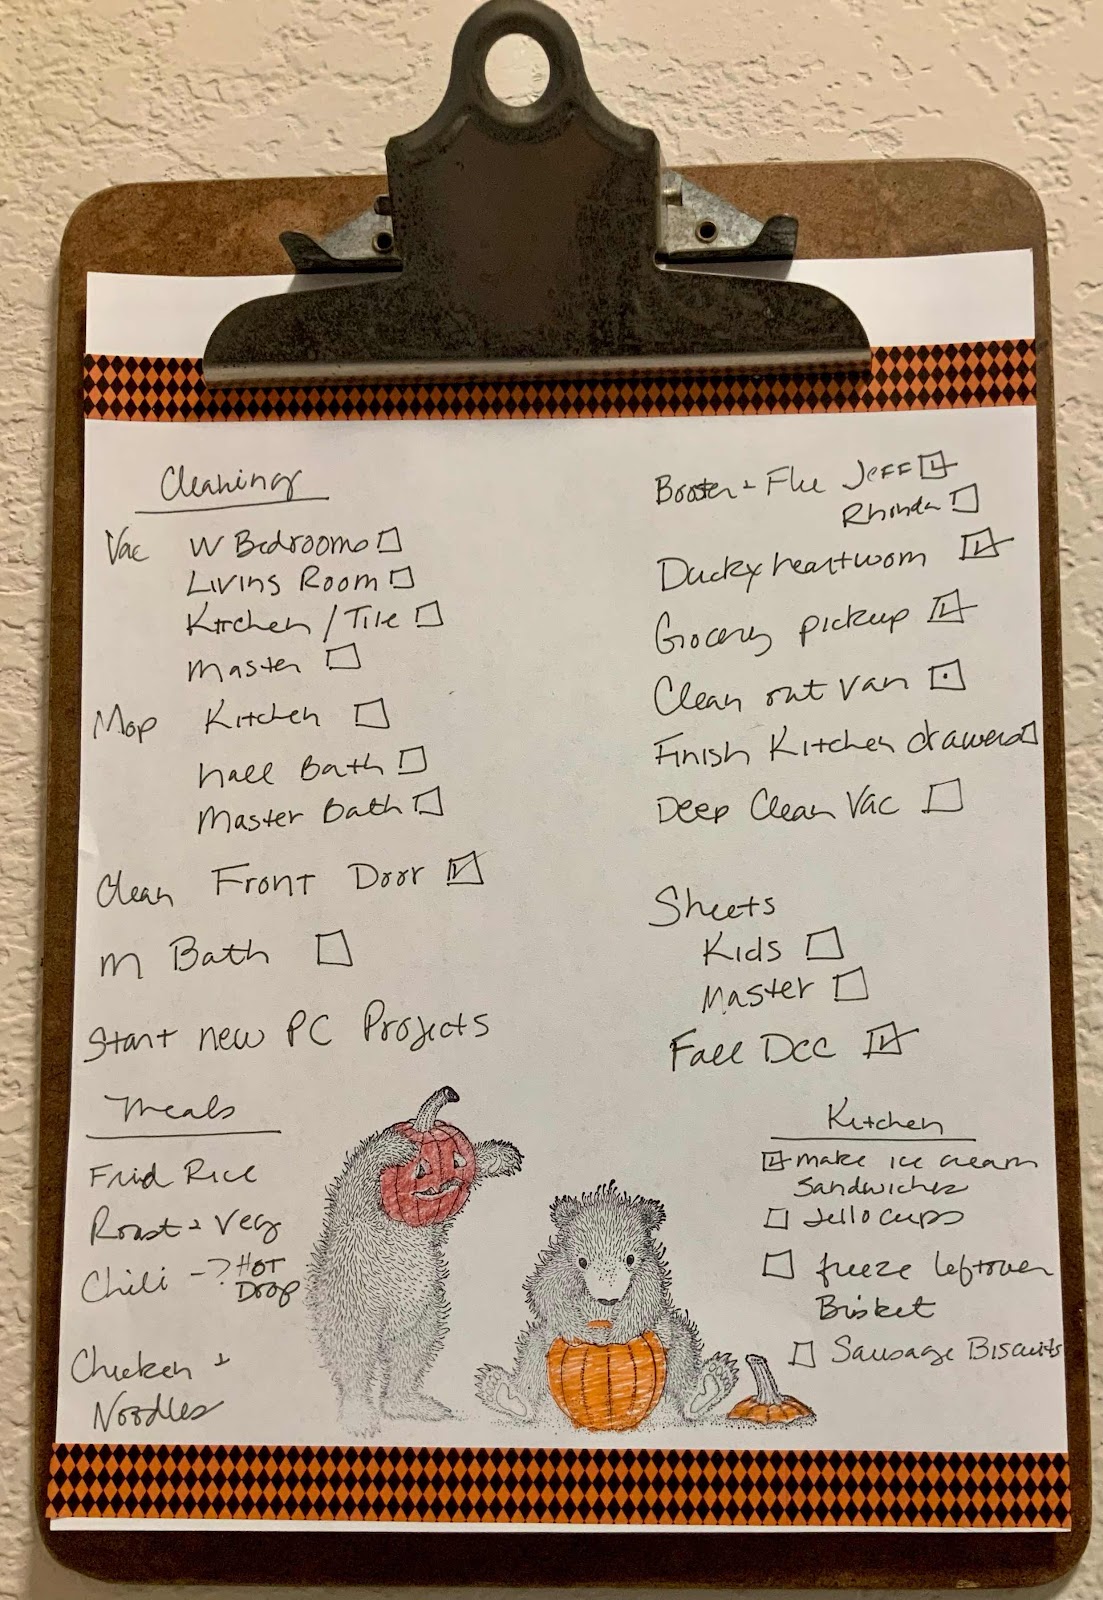 Cleaning
Vac W Bedrooms
Living Room
Kitchen / Tile
Master
Mop Kitchen
Hall Bath
Master Bath
Clean Front Door
M Bath
Start new PC Projects
Meals
Fried Rice
Roast + Veg
Chili - ? HOT
DROP
Chicken +
Noodles
Booster + Flu Jeff
Rhonda
Ducky heartworm
Grocery pickup
Clean out van
Finish Kitchen drawers
Deep Clean Vac
Sheets
Kids
Master
Fall Dec
Kitchen
make ice cream
sandwiches
Jello cups
freeze leftover
Brisket
Sausage Biscuits